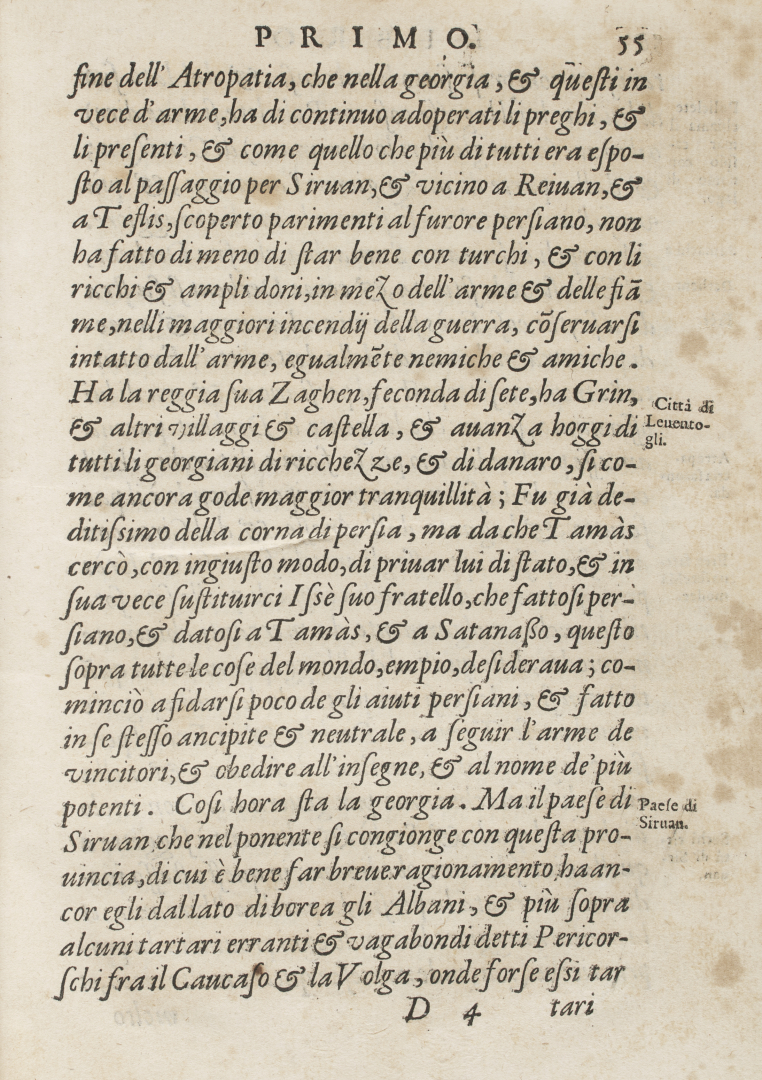 PRIMO. 55
fine dell' Atropatia, che nella georgia, & questi in
vece d'arme, ha di continuo adoperati li preghi, &
li presenti, & come quello che più di tutti era espo-
sto al passaggio per Siruan, & vicino a Reiuan, &
a Teflis, scoperto parimenti al furore persiano, non
ha fatto di meno di star bene con turchi, & con li
ricchi & ampli doni, in mezo dell'arme & delle fiā
me, nelli maggiori incendij della guerra, cōseruarsi
intatto dall'arme, egualmēte nemiche & amiche.
Ha la reggia sua Zaghen, feconda di sete, ha Grin,
& altri villaggi & castella, & auanza hoggidi
tutti li georgiani di ricchezze, & di danaro, si co-
me ancora gode maggior tranquillità; Fu già de-
ditissimo della corna di persia, ma da che Tamàs
cercò, con ingiusto modo, di priuar lui di stato, & in
sua vece sustituirci Issè suo fratello, che fattosi per-
siano, & datosi a Tamàs, & a Satanaßo, questo
sopra tutte le cose del mondo, empio, desideraua; co-
minciò a fidarsi poco de gli aiuti persiani, & fatto
in se stesso ancipite & neutrale, a seguir l'arme de
vincitori, & obedire all'insegne, & al nome de'più
potenti. Cosi hora sta la georgia. Ma il paese di
Siruan che nel ponente si congionge con questa pro-
uincia, di cui è bene far breue ragionamento, ha an-
cor egli dal lato di borea gli Albani, & più sopra
alcuni tartari erranti & vagabondi detti Pericor-
schi fra il Caucaso & la Volga, onde forse essi tar
D 4 tari
Città di
Leuento-
gli.
Paese di
Siruan.